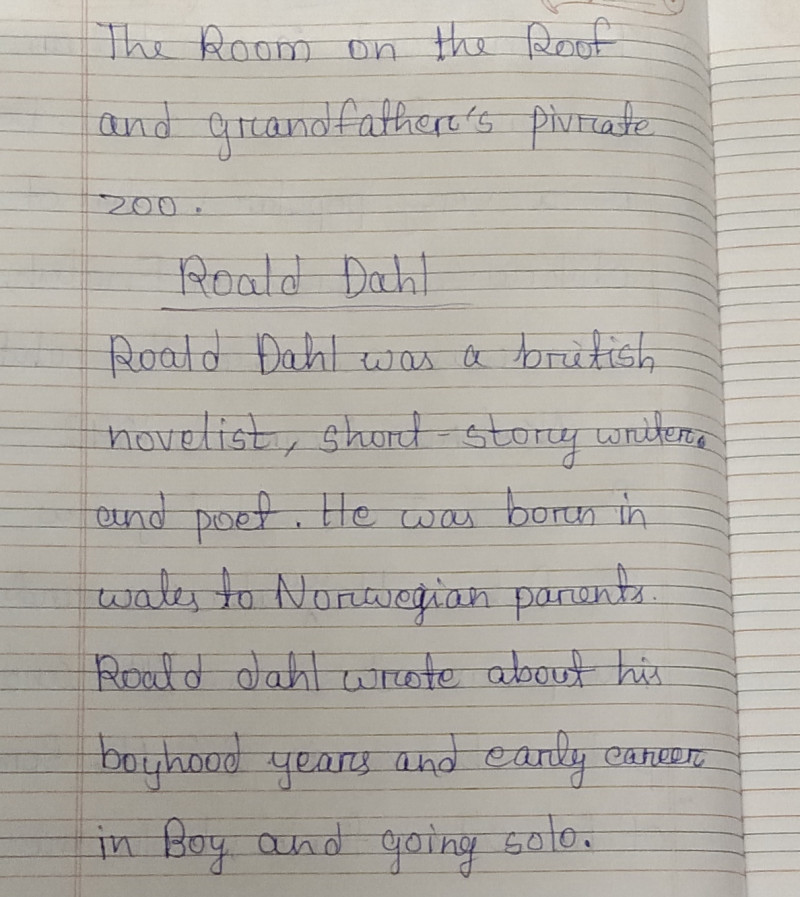 The Room on the Roof
and grandfather's pivrate
zoo.
Roald Dahl
Roald Dahl was a british
novelist, short-story writer.
and poet. He was born in
wales to Norwegian parents.
Roald dahl wrote about his
boyhood years and early career
in Boy and going solo.